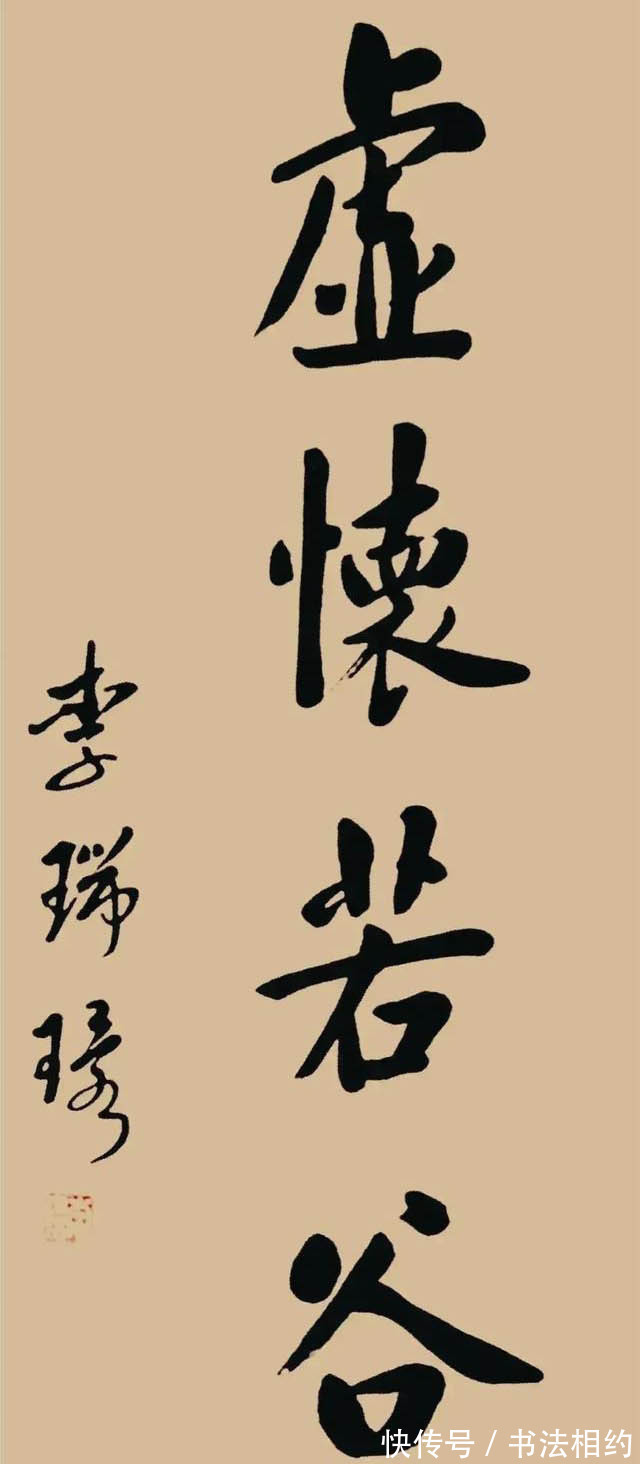 虚懷若谷
李瑞環
快传号/书法相约